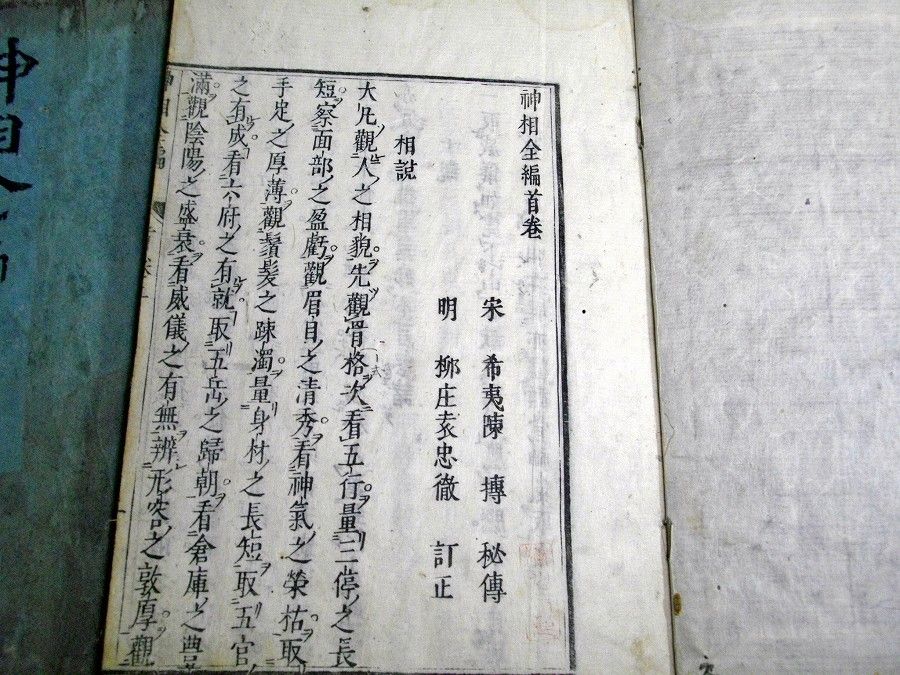 神相全編首卷
宋 希夷陳 摶 秘傳
明 柳庄袁忠徹 訂正
相說
大凡觀人之相貌先觀骨格次看五行量三停之長
短察面部之盈虧觀眉目之清秀看神氣之榮枯取
手足之厚薄觀鬚髮之踈濁量身材之長短取五官
之有成看六府之有就取五岳之歸朝看倉庫之豊
滿觀陰陽之盛衰看威儀之有無辨形容之敦厚觀